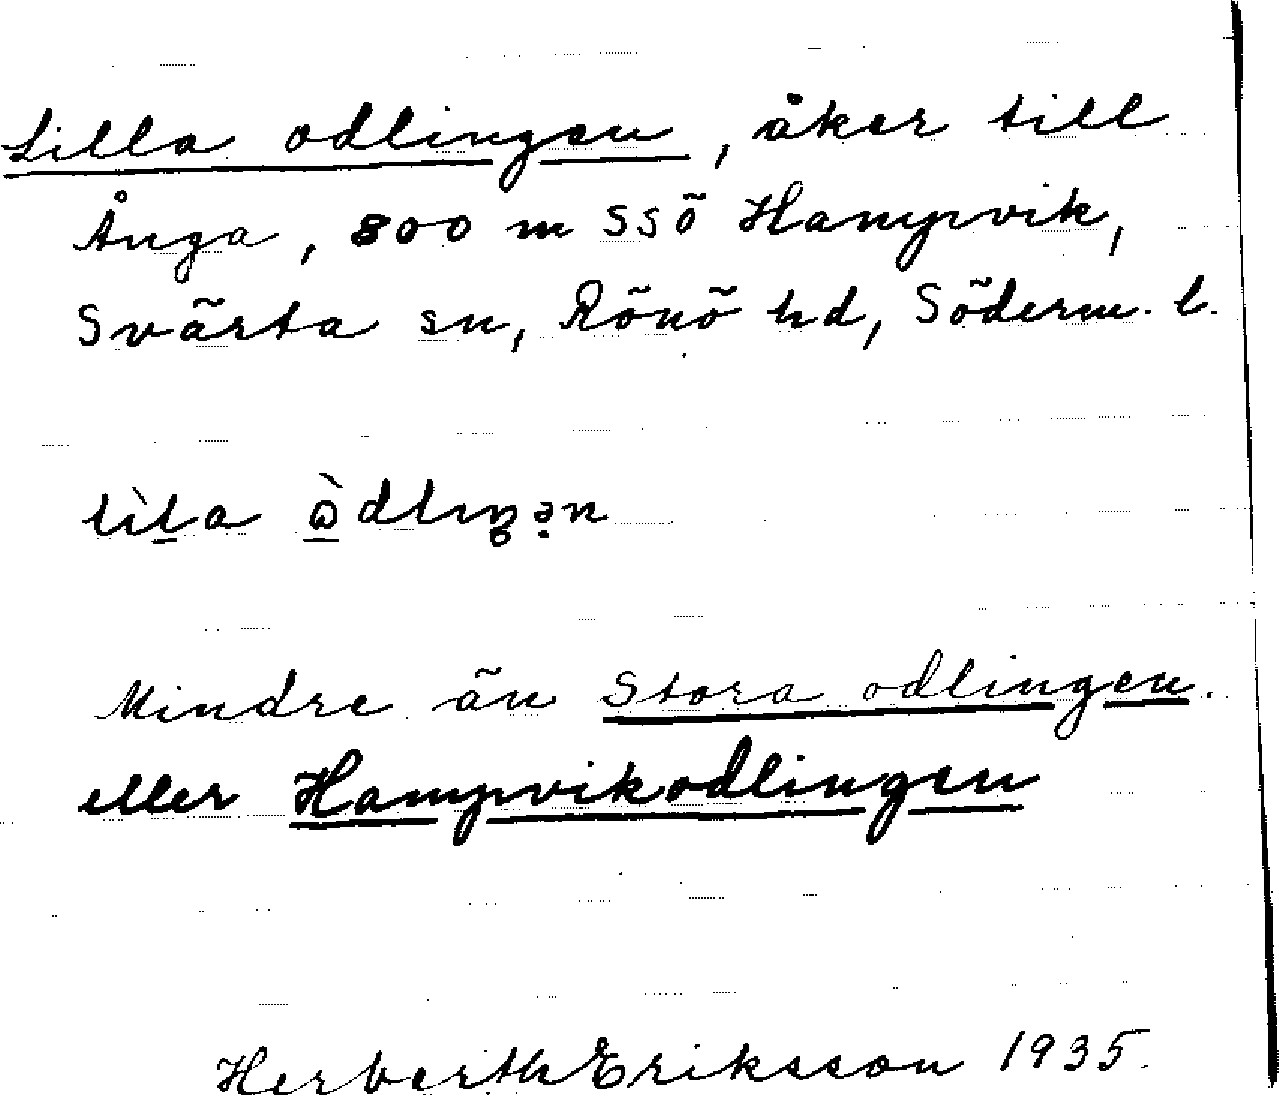 Lilla odlingen, åker till
Ånga, 800 m SSÖ Hampvik,
Svärta sn, Rönö hd, Söderm. l.
lìl̠a ò̠dlıŋən
Mindre än Stora odlingen.
eller Hampvikodlingen
Herberth Eriksson 1935.